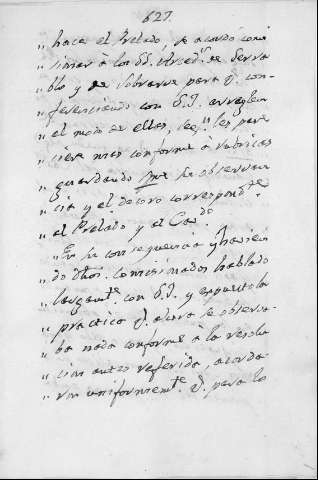 627.
" hace el Prelado, se acordó comi
" sionar à los SS. Arced.s de Serra
" blo y de Sobrarve para q.e con
" ferenciando con S.I. arreglen
" el modo de ellas, seg.n les pare
" ciere mas conforme à rubricas
" guardando la observan
" cia y el decoro correspond.te
" al Prelado y al Cav.do
" En su consequencia y havien
" do dhos. Comisionados hablado
" largam.te con S.I. y expuesto la
" practica q.e ahora se observa
" ba nada conforme à la resolu
" cion antes referida, acorda
" ron uniformem.te q.e para lo